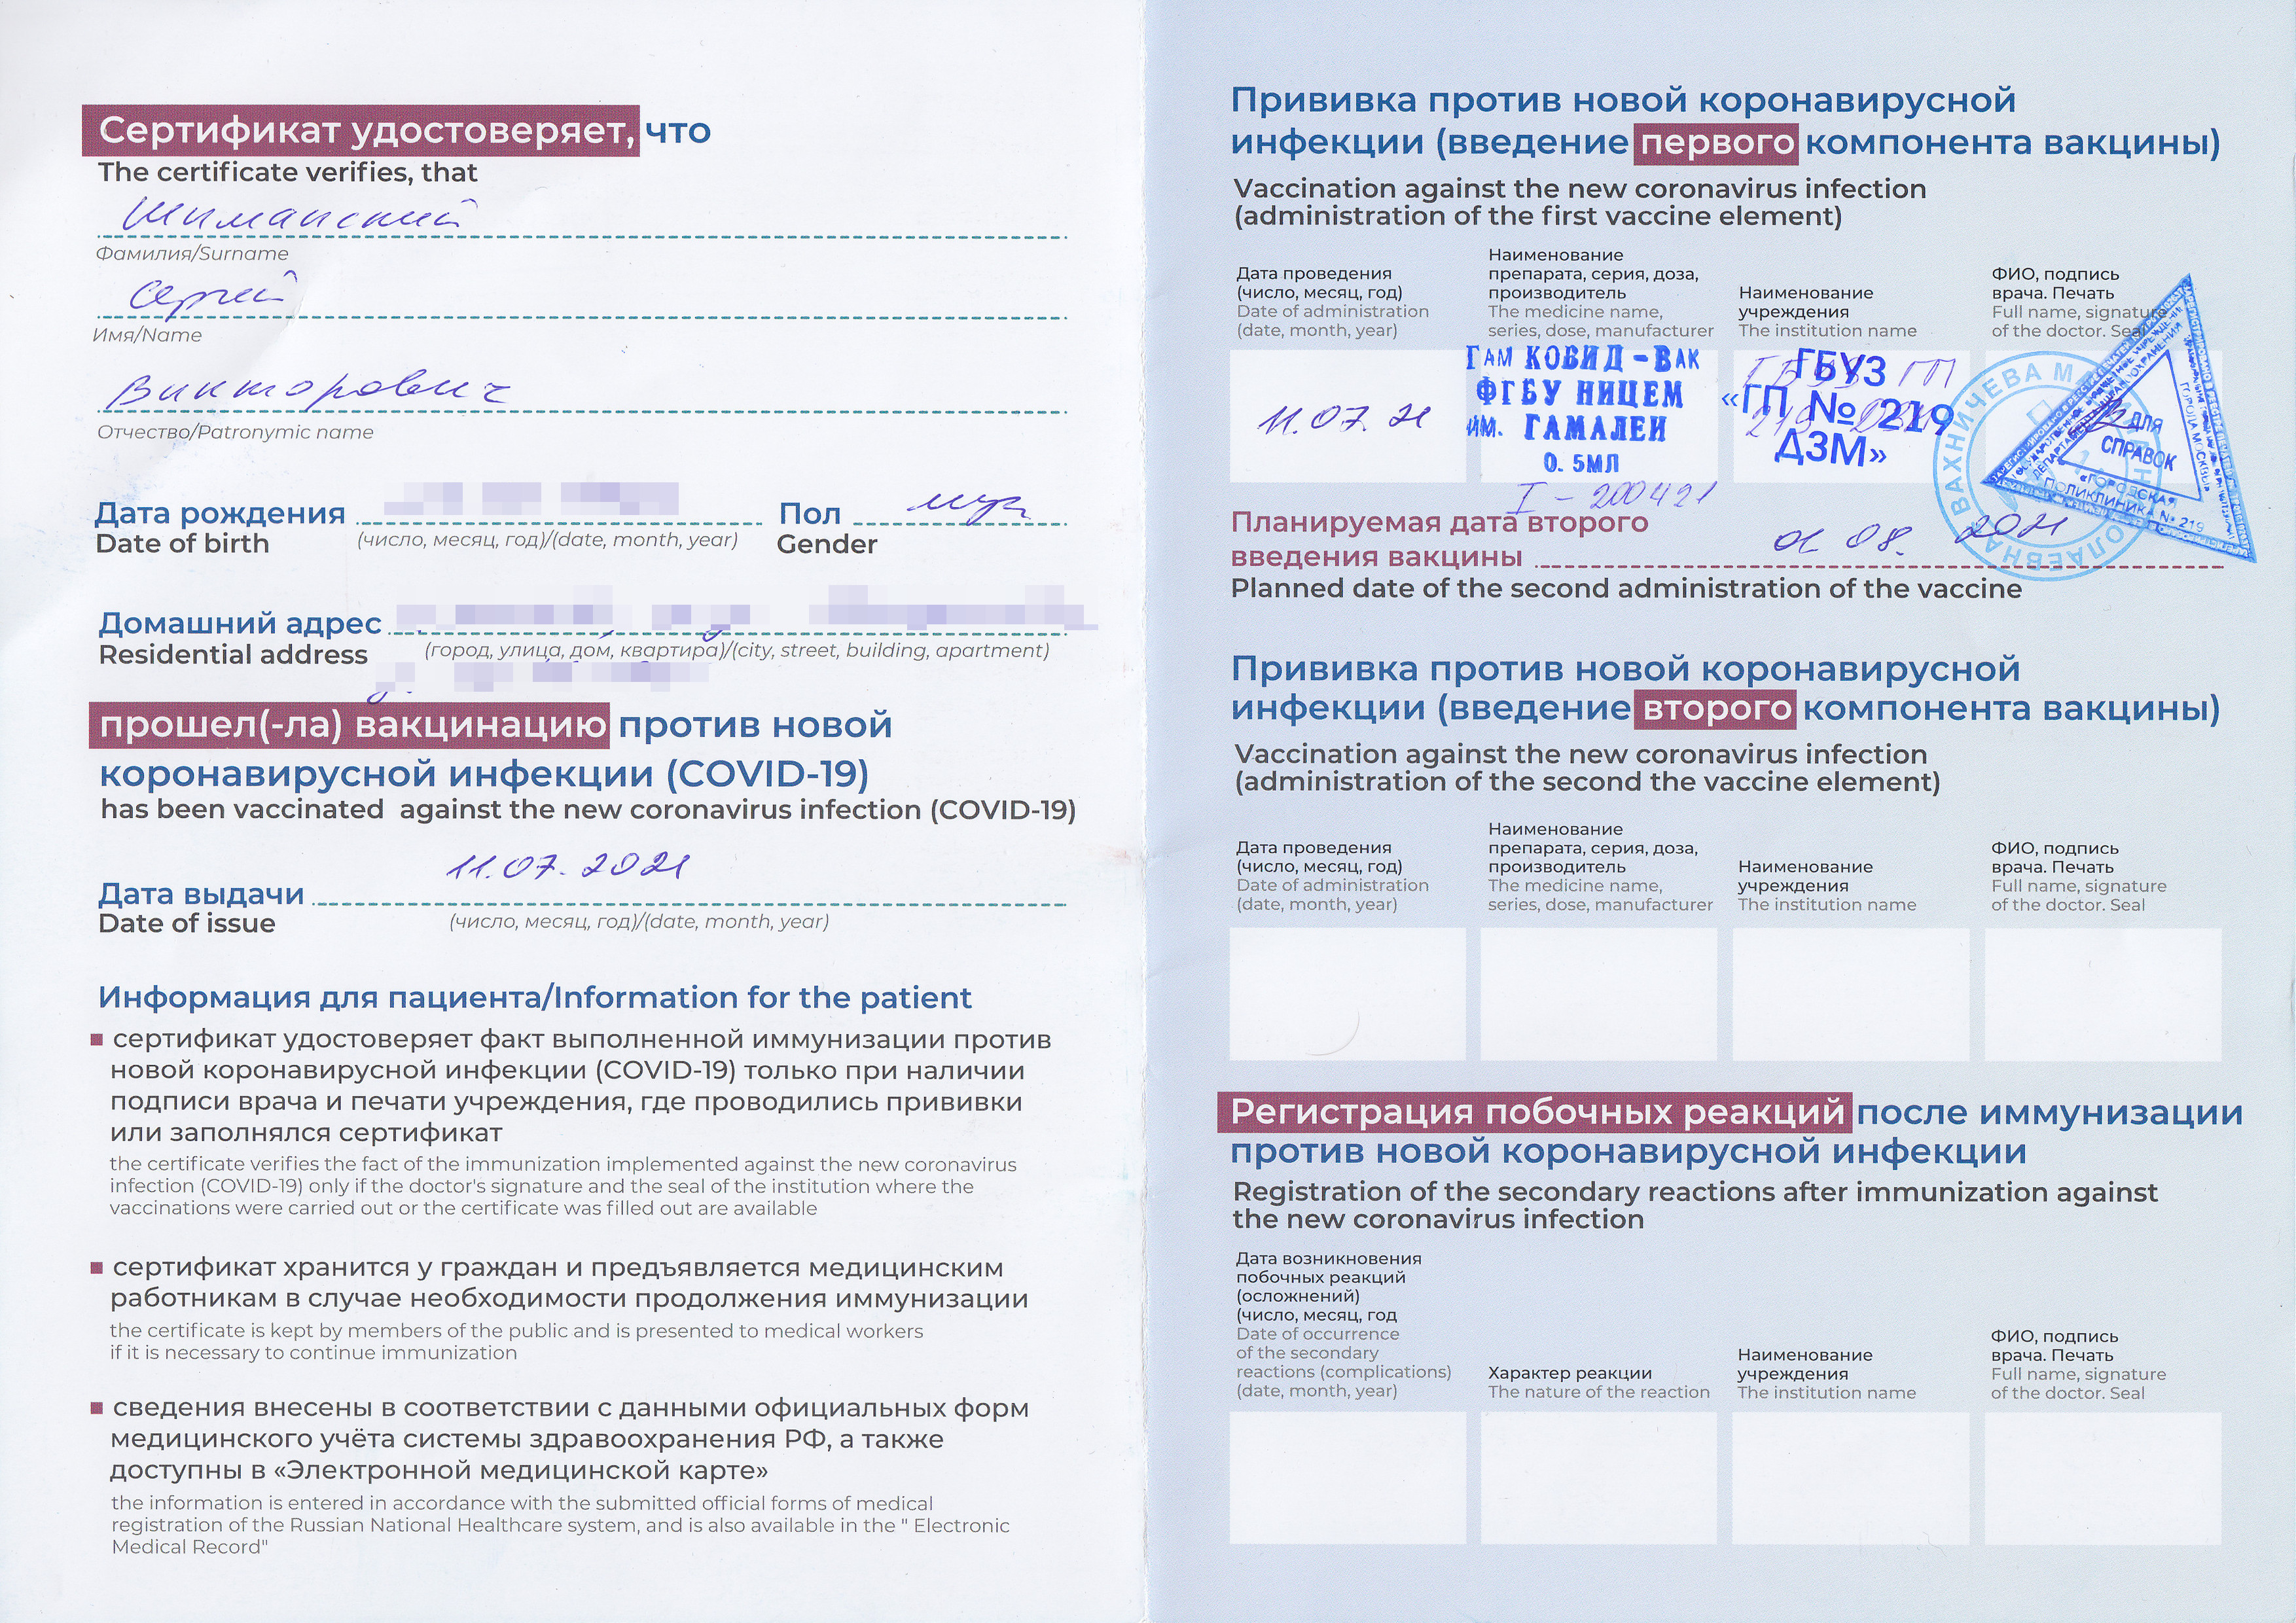 Сертификат удостоверяет, что
The certificate verifies, that
Шиманский
Фамилия/Surname
Сергей
Имя/Name
Викторович
Отчество/Patronymic name
Дата рождения
Date of birth
(число, месяц, год)/(date, month, year)
Пол муж
Gender
Домашний адрес
Residential address
(город, улица, дом, квартира)/(city, street, building, apartment)
прошел(-ла) вакцинацию против новой
коронавирусной инфекции (COVID-19)
has been vaccinated against the new coronavirus infection (COVID-19)
11.07.2021
Дата выдачи
Date of issue
(число, месяц, год)/(date, month, year)
Информация для пациента/Information for the patient
сертификат удостоверяет факт выполненной иммунизации против
новой коронавирусной инфекции (COVID-19) только при наличии
подписи врача и печати учреждения, где проводились прививки
или заполнялся сертификат
the certificate verifies the fact of the immunization implemented against the new coronavirus
infection (COVID-19) only if the doctor's signature and the seal of the institution where the
vaccinations were carried out or the certificate was filled out are available
сертификат хранится у граждан и предъявляется медицинским
работникам в случае необходимости продолжения иммунизации
the certificate is kept by members of the public and is presented to medical workers
if it is necessary to continue immunization
сведения внесены в соответствии с данными официальных форм
медицинского учёта системы здравоохранения РФ, а также
доступны в «Электронной медицинской карте»
the information is entered in accordance with the submitted official forms of medical
registration of the Russian National Healthcare system, and is also available in the " Electronic
Medical Record"
Прививка против новой коронавирусной
инфекции (введение первого компонента вакцины)
Vaccination against the new coronavirus infection
(administration of the first vaccine element)
Дата проведения
(число, месяц, год)
Date of administration
(date, month, year)
Наименование
препарата, серия, доза,
производитель
The medicine name,
series, dose, manufacturer
Наименование
учреждения
The institution name
ФИО, подпись
врача. Печать
Full name, signature
of the doctor. Seal
11.07.21
ГАМ КОВИД-ВАК
ФГБУ НИЦЕМ
ИМ. ГАМАЛЕИ
0.5МЛ
I - 200421
ГБУЗ
«ГП № 219
ДЗМ»
ГБУЗ ГП
219 ДЗМ
ВАХНИЧЕВА
ДЛЯ
СПРАВОК
«ГОРОДСКАЯ
ПОЛИКЛИНИКА № 219
ГОРОДА МОСКВЫ»
Планируемая дата второго
введения вакцины 01 08. 2021
Planned date of the second administration of the vaccine
Прививка против новой коронавирусной
инфекции (введение второго компонента вакцины)
Vaccination against the new coronavirus infection
(administration of the second the vaccine element)
Дата проведения
(число, месяц, год)
Date of administration
(date, month, year)
Наименование
препарата, серия, доза,
производитель
The medicine name,
series, dose, manufacturer
Наименование
учреждения
The institution name
ФИО, подпись
врача. Печать
Full name, signature
of the doctor. Seal
Регистрация побочных реакций после иммунизации
против новой коронавирусной инфекции
Registration of the secondary reactions after immunization against
the new coronavirus infection
Дата возникновения
побочных реакций
(осложнений)
(число, месяц, год
Date of occurrence
of the secondary
reactions (complications)
(date, month, year)
Характер реакции
The nature of the reaction
Наименование
учреждения
The institution name
ФИО, подпись
врача. Печать
Full name, signature
of the doctor. Seal